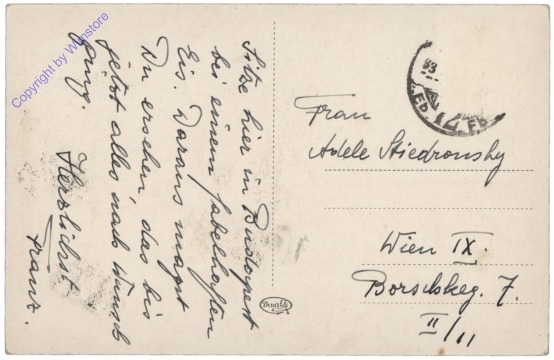 Sitze hier in Budapest
bei einem fabelhaften
Eis. Daraus magst
Du ersehen das bis
jetzt alles nach Wunsch
ging.
Herzlichst
Franz.
Frau
Adele Stiedronsky
Wien IX.
Borschkeg. 7.
II/11
Divald
Copyright by Wnstore